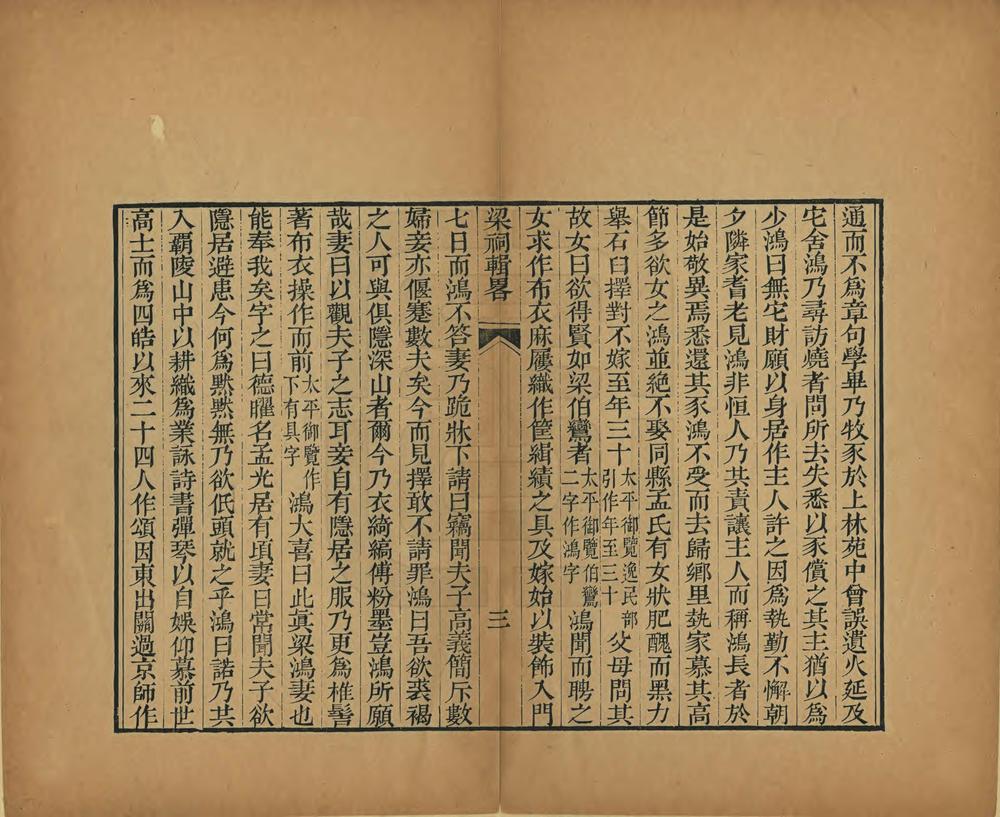 通而不爲章句學畢乃牧豕於上林苑中曾誤遺火延及
它舍鴻乃尋訪燒者問所去失悉以豕償之其主猶以爲
少鴻曰無它財願以身居作主人許之因爲執勤不懈朝
夕隣家耆老見鴻非恒人乃共責讓主人而稱鴻長者於
是始敬異焉悉還其豕鴻不受而去歸鄉里埶家慕其高
節多欲女之鴻並絕不娶同縣孟氏有女狀肥醜而黑力
舉石臼擇對不嫁至年三十太平御覽逸民部引作年至三十父母問其
故女曰欲得賢如梁伯鸞者太平御覽伯鸞二字作鴻字鴻聞而聘之
女求作布衣麻屨織作筐緝績之具及嫁始以裝飾入門
梁祠輯畧 三
七日而鴻不答妻乃跪牀下請曰竊聞夫子高義簡斥數
婦妾亦偃蹇數夫矣今而見擇敢不請罪鴻曰吾欲裘褐
之人可與俱隱深山者爾今乃衣綺縞傅粉墨豈鴻所願
哉妻曰以觀夫子之志耳妾自有隱居之服乃更爲椎髻
著布衣操作而前太平御覽作下有具字鴻大喜曰此眞梁鴻妻也
能奉我矣字之曰德曜名孟光居有頃妻曰常聞夫子欲
隱居避患今何爲默默無乃欲低頭就之乎鴻曰諾乃共
入霸陵山中以耕織爲業詠詩書彈琴以自娛仰慕前世
高士而爲四皓以來二十四人作頌因東出關過京師作